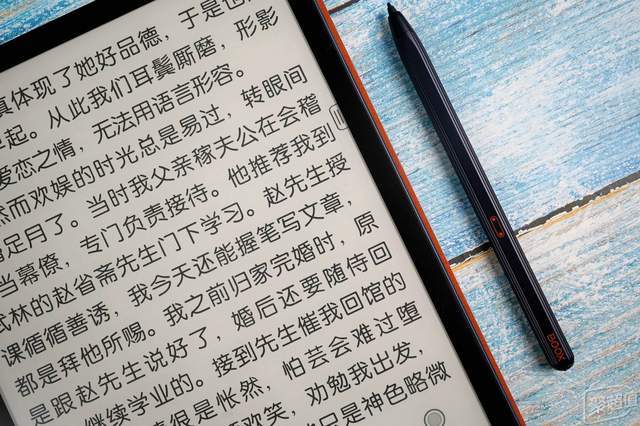 具体现了她好品德，于是也
起。从此我们耳鬓厮磨，形影
爱恋之情，无法用语言形容。
然而欢娱的时光总是易过，转眼间
足月了。当时我父亲稼夫公在会稽
当幕僚，专门负责接待。他推荐我到
武林的赵省斋先生门下学习。赵先生授
课循循善诱，我今天还能握笔写文章，
都是拜他所赐。我之前归家完婚时，原
是跟赵先生说好了，婚后还要随侍回
继续学业的。接到先生催我回馆的
很是怅然，怕芸会难过堕
欢笑，劝勉我出发，
只是神色略微
BOOX